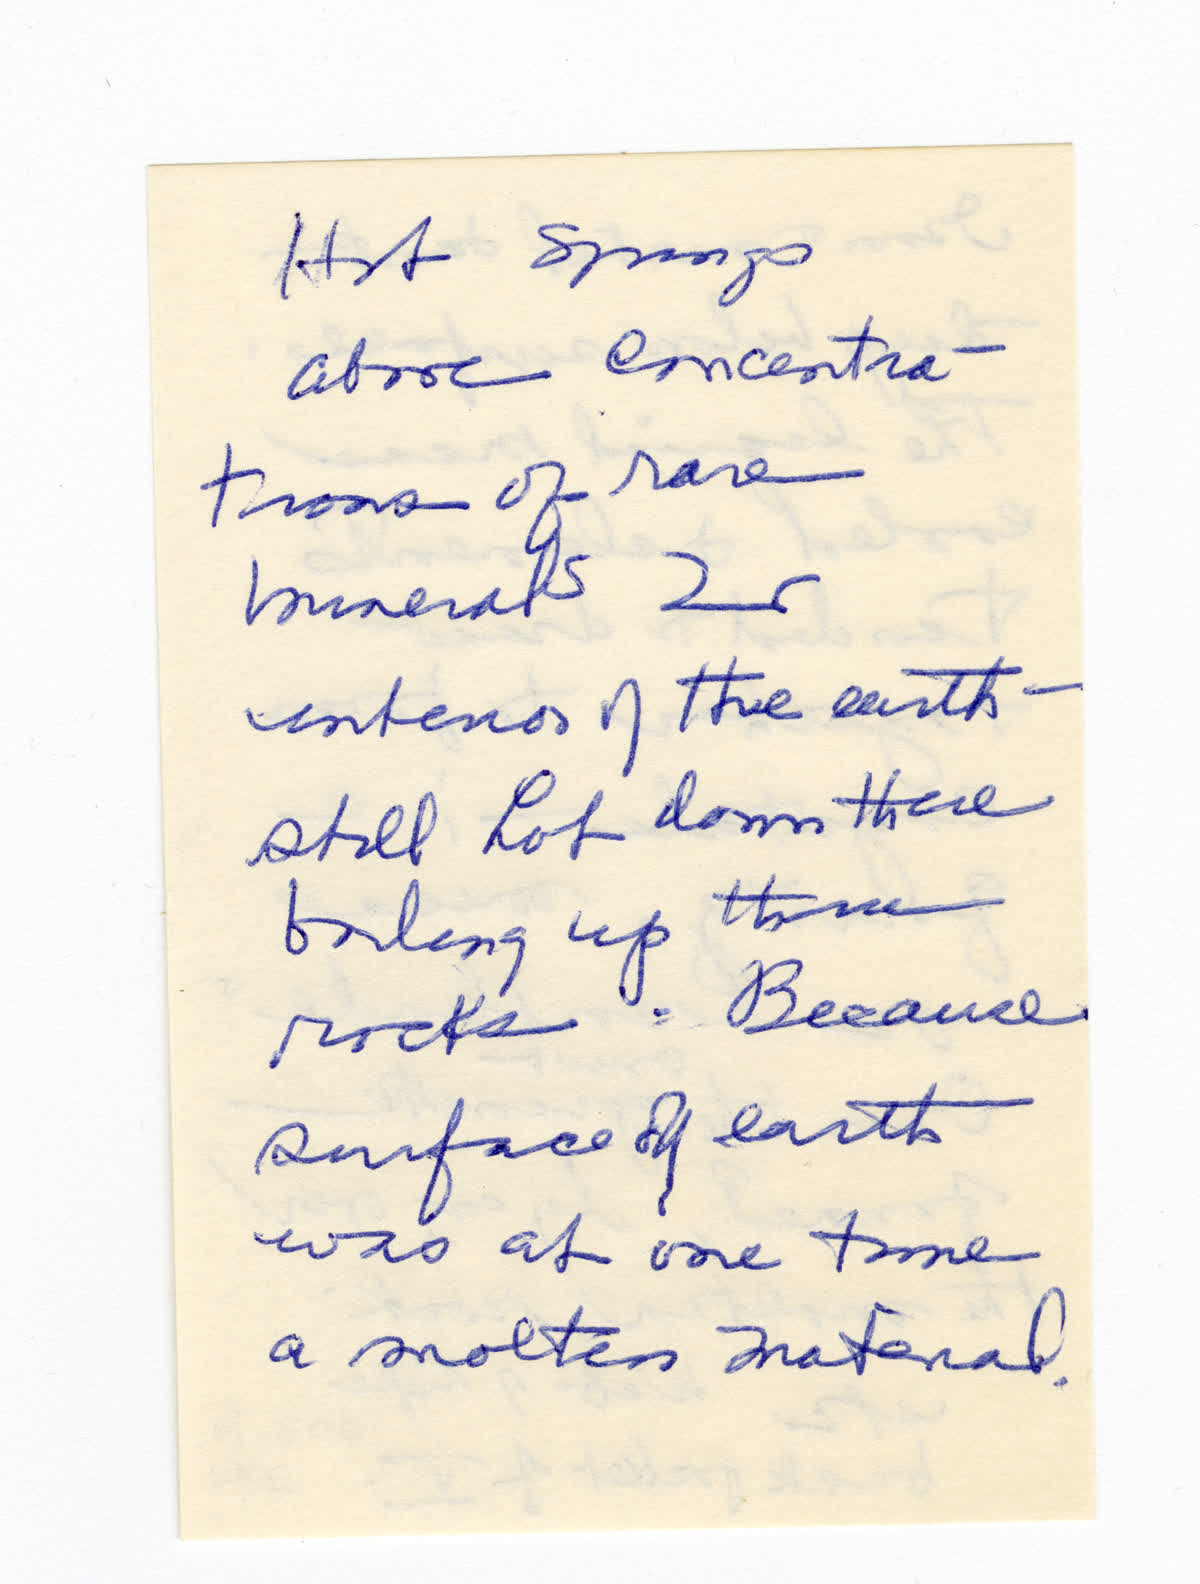 Hot Springs
above concentra-
tions of rare
minerals
interior of the earth -
still hot down there
boiling up thru
rocks. Because
surface of earth
was at one time
a molten material.